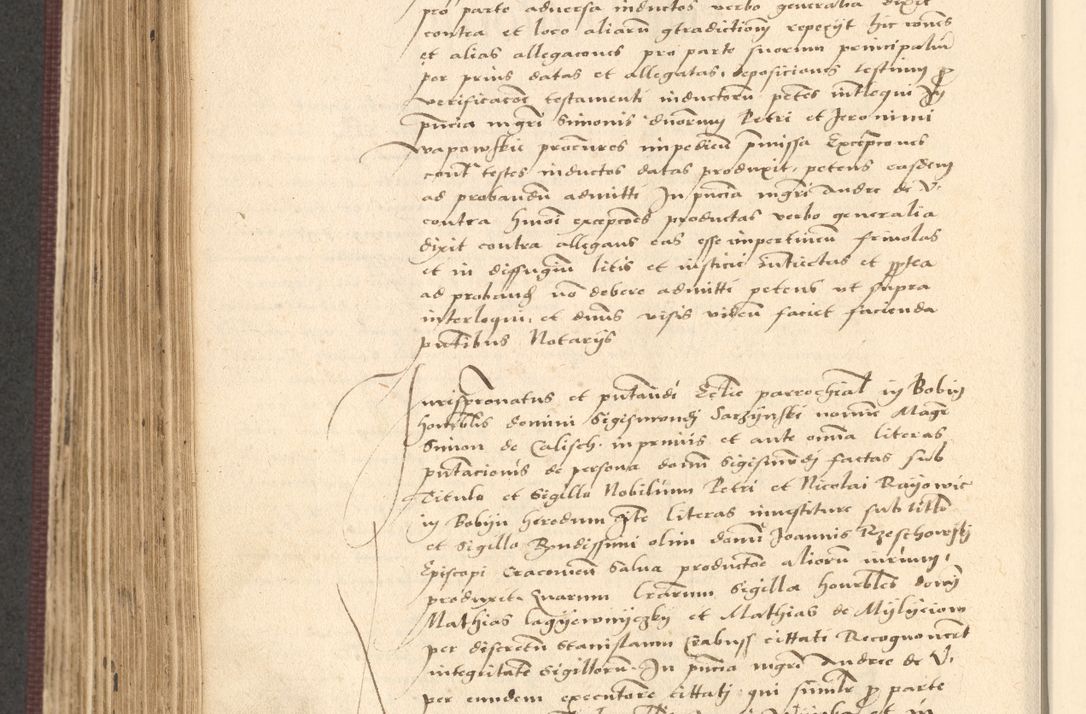 pro parte adversa inductos verbo generalia dixit
contra et loco aliarū gtradictionū repetyt hic rones
et alias allegacones pro parte suorum principaliū
per prius datas et allegatas, deposiciones testium p
verificacoe testamenti inductorū petes intloqui In
pncia mgri Simonis dnorum Petri et Jeronimi
wapowskie procures impediens pmissa Excepcones
cont testes inductos datas produxit, petens easdem
ad probandū admitti In pncia mgri Andree de V.
contra hmoi excepcoes productas verbo generalia
dixit contra allegans eas esse impertinen frivolas
et in diffugiū litis et iusticie et pptea
ad proband no debere admitti petens ut supra
interloqui, et dnus visis viden faciet facienda
pntibus Notarys
Jurispronatus et pntandi Eccle parrochial in Bobin
honrbilis domini Sigismundi Sarzynski nomine Magr
Simon de Calisch. inprimis et ante omnia literas
pntacionis de persona domi Sigismudi factas sub
Titulo et Sigillo Nobilium Petri et Nicolai Rayowic
in Bobyn heredum Ite literas investiture sub titlo
et Sigillo Rndissimi olim domi Joannis Rzeschowski
Episcopi Cracouien Salva productoe aliorū iurium,
produxit. Quarum lrarum Sigilla honrbles domi
Mathias lagyewnyczky et Mathias de Mylyeiow
per discretū Stanislaum Crabuss cittati Recognouert
integritate Sigillorū. In pncia mgri Andree de V.
per eundem executore cittati, qui simlr p parte